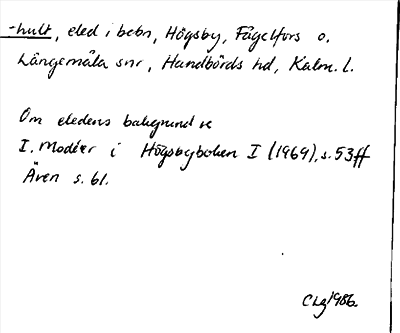 -hult, eled i bebn, Högsby, Fågelfors o.
Långemåla snr, Handbörds hd, Kalm. l.
Om eledens bakgrund se
I. Modéer i Högsbyboken I (1969), s. 53ff
Även s. 61.
CLg 1986.